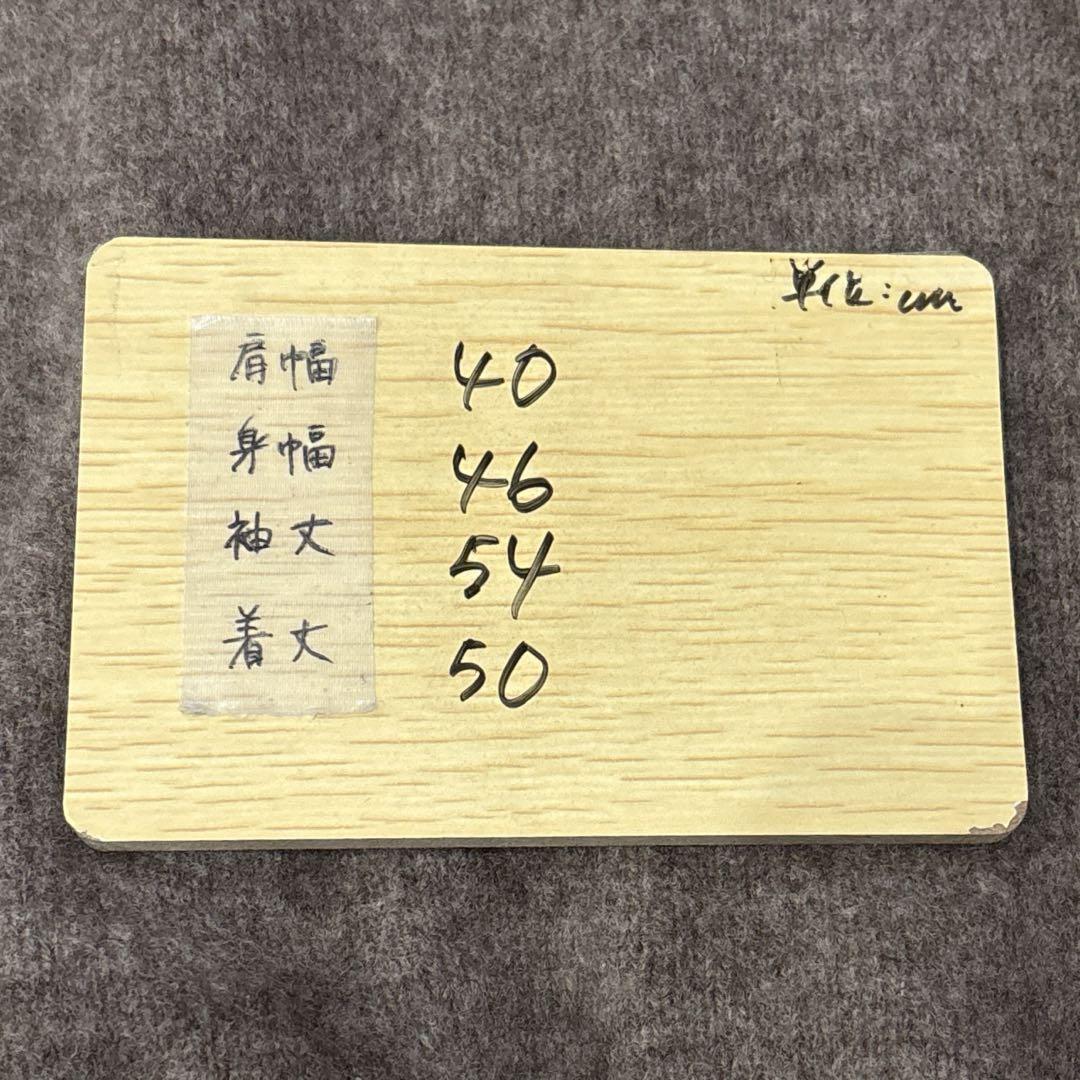 単位:cm
肩幅 40
身幅 46
袖丈 54
着丈 50